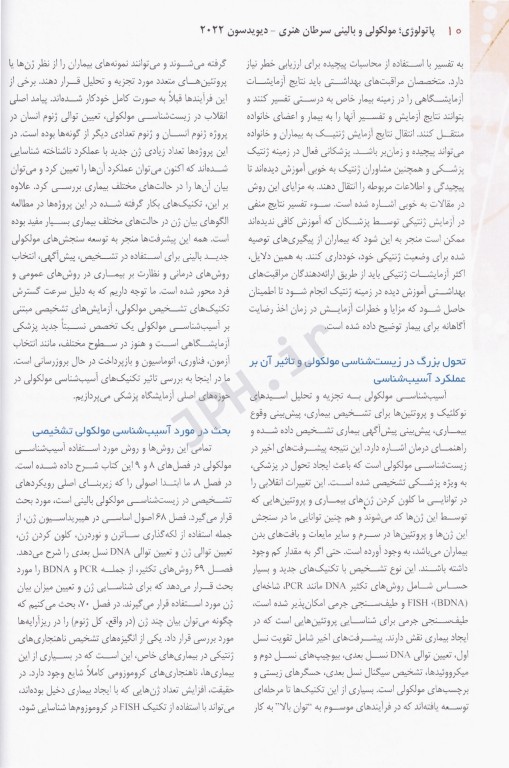 ۱۰ پاتولوژی؛ مولکولی و بالینی سرطان هنری - دیویدسون ۲۰۲۲
به تفسیر با استفاده از محاسبات پیچیده برای ارزیابی خطر نیاز
دارد. متخصصان مراقبت‌های بهداشتی باید نتایج آزمایشات
آزمایشگاهی را در زمینه بیمار خاص به درستی تفسیر کنند و
بتوانند نتایج آزمایش و تفسیر آنها را به بیمار و اعضای خانواده
منتقل کنند. انتقال نتایج آزمایش ژنتیک به بیماران و خانواده
می‌تواند پیچیده و زمان‌بر باشد. پزشکانی فعال در زمینه ژنتیک
پزشکی و همچنین مشاوران ژنتیک به خوبی آموزش دیده‌اند تا
پیچیدگی و اطلاعات مربوطه را انتقال دهند. به مزایای این روش
در مقالات به خوبی اشاره شده است. سوء تفسیر نتایج منفی
در آزمایش ژنتیکی توسط پزشکان که آموزش کافی ندیده‌اند
ممکن است منجر به این شود که بیماران از پیگیری‌های توصیه
شده برای وضعیت ژنتیکی خود، خودداری کنند. به همین دلایل،
اکثر آزمایشات ژنتیکی باید از طریق ارائه‌دهندگان مراقبت‌های
بهداشتی آموزش دیده در زمینه ژنتیک انجام شود تا اطمینان
حاصل شود که مزایا و خطرات آزمایش در زمان اخذ رضایت
آگاهانه برای بیمار توضیح داده شده است.
تحول بزرگ در زیست‌شناسی مولکولی و تاثیر آن بر
عملکرد آسیب‌شناسی
آسیب‌شناسی مولکولی به تجزیه و تحلیل اسیدهای
نوکلئیک و پروتئین‌ها برای تشخیص بیماری، پیش‌بینی وقوع
بیماری، پیش‌بینی پیش‌آگهی بیماری تشخیص داده شده و
راهنمای درمان اشاره دارد. این نتیجه پیشرفت‌های اخیر در
زیست‌شناسی مولکولی است که باعث ایجاد تحول در پزشکی،
به ویژه پزشکی تشخیصی شده است. این تغییرات انقلابی را
در توانایی ما کلون کردن ژن‌های بیماری و پروتئین‌هایی که
توسط این ژن‌ها کد می‌شوند و هم چنین توانایی ما در سنجش
این ژن‌ها و پروتئین‌ها در سرم و سایر مایعات و بافت‌های بدن
بیماران می‌باشد، به وجود آورده است. حتی اگر به مقدار کم وجود
داشته باشند. این نوع تشخیص با تکنیک‌های جدید و بسیار
حساس شامل روش‌های تکثیر DNA مانند PCR، شاخه‌ای
(BDNA)، FISH و طیف‌سنجی جرمی امکان‌پذیر شده است.
طیف‌سنجی جرمی برای شناسایی پروتئین‌هایی است که در
ایجاد بیماری نقش دارند. پیشرفت‌های اخیر شامل تقویت نسل
اول، تعیین توالی DNA نسل بعدی، بیوچیپ‌های نسل دوم و
میکرووئیدها، تشخیص سیگنال نسل بعدی، حسگرهای زیستی و
برچسب‌های مولکولی است. بسیاری از این تکنیک‌ها تا مرحله‌ای
توسعه یافته‌اند که در فرآیندهای موسوم به "توان بالا" به کار
گرفته می‌شوند و می‌توانند نمونه‌های بیماران را از نظر ژن‌ها یا
پروتئین‌های متعدد مورد تجزیه و تحلیل قرار دهند. برخی از
این فرآیندها قبلاً به صورت کامل خودکار شده‌اند. پیامد اصلی
انقلاب در زیست‌شناسی مولکولی، تعیین توالی ژنوم انسان در
پروژه ژنوم انسان و ژنوم تعدادی دیگر از گونه‌ها بوده است. در
این پروژه‌ها تعداد زیادی ژن جدید با عملکرد ناشناخته شناسایی
شده‌اند که اکنون می‌توان عملکرد آن‌ها را تعیین کرد و می‌توان
بیان آن‌ها را در حالت‌های مختلف بیماری بررسی کرد. علاوه
بر این، تکنیک‌های بکار گرفته شده در این پروژه‌ها در مطالعه
الگوهای بیان ژن در حالت‌های مختلف بیماری بسیار مفید بوده
است. همه این پیشرفت‌ها منجر به توسعه سنجش‌های مولکولی
جدید بالینی برای استفاده در تشخیص، پیش‌آگهی، انتخاب
روش‌های درمانی و نظارت بر بیماری در روش‌های عمومی و
فرد محور شده است. ما توجه داریم که به دلیل سرعت گسترش
تکنیک‌های تشخیص مولکولی، آزمایش‌های تشخیصی مبتنی
بر آسیب‌شناسی مولکولی یک تخصص نسبتاً جدید پزشکی
آزمایشگاهی است و هنوز در سطوح مختلف، مانند انتخاب
آزمون، فناوری، اتوماسیون و بازپرداخت در حال بروزرسانی است.
ما در اینجا به بررسی تاثیر تکنیک‌های آسیب‌شناسی مولکولی در
حوزه‌های اصلی آزمایشگاه پزشکی می‌پردازیم.
بحث در مورد آسیب‌شناسی مولکولی تشخیصی
تمامی این روش‌ها و روش مورد استفاده آسیب‌شناسی
مولکولی در فصل‌های ۸ و ۹ این کتاب شرح داده شده است.
در فصل ۸ ما ابتدا اصولی را که زیربنای اصلی رویکردهای
تشخیصی در زیست‌شناسی مولکولی بالینی است، مورد بحث
قرار می‌گیرد. فصل ۶۸ اصول اساسی در هیبریداسیون ژن، از
جمله استفاده از لکه‌گذاری ساترن و نوردرن، کلون کردن ژن،
تعیین توالی ژن و تعیین توالی DNA نسل بعدی را شرح می‌دهد.
فصل ۶۹ روش‌های تکثیر، از جمله PCR و BDNA را مورد
بحث قرار می‌دهد که برای شناسایی ژن و تعیین میزان بیان
ژن مورد استفاده قرار می‌گیرند. در فصل ۷۰، بحث می‌کنیم که
چگونه می‌توان بیان چند ژن (در واقع، کل ژنوم) را در ریزآرایه‌ها
مورد بررسی قرار داد. یکی از انگیزه‌های تشخیص ناهنجاری‌های
ژنتیکی در بیماری‌های خاص، این است که در بسیاری از این
بیماری‌ها، ناهنجاری‌های کروموزومی کاملاً شایع وجود دارد. در
حقیقت، افزایش تعداد ژن‌هایی که با ایجاد بیماری دخیل بوده‌اند،
می‌تواند با استفاده از تکنیک FISH در کروموزوم‌ها شناسایی شود.
JPH.ir